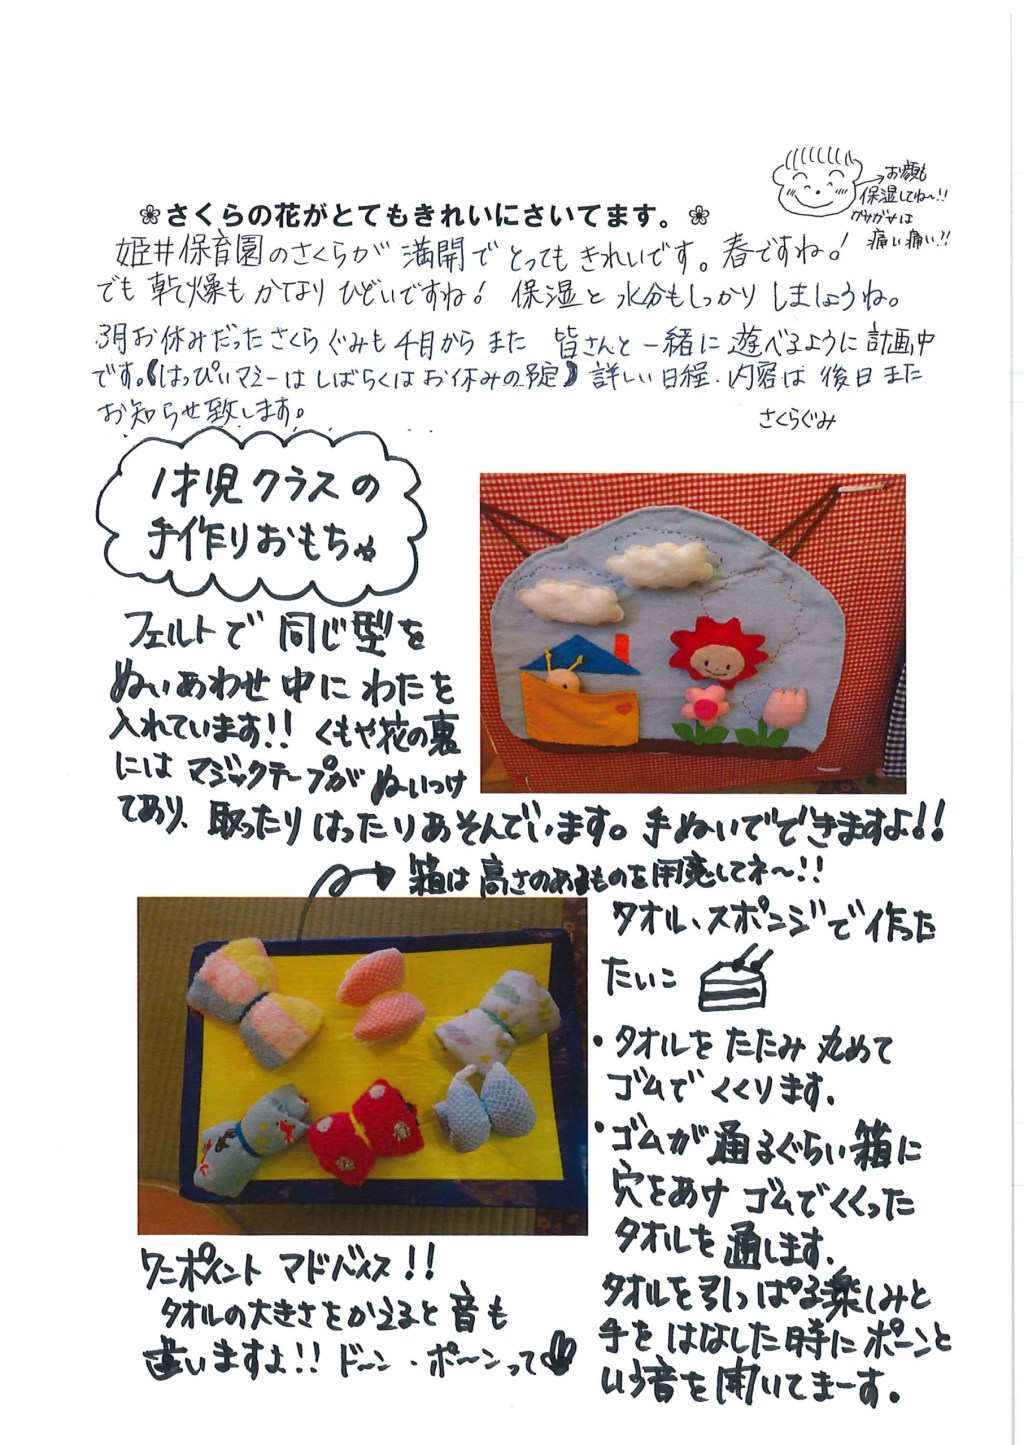 お顔も
保湿してね～!!
ガサガサは
痛い痛い!!
❀さくらの花がとてもきれいにさいてます。❀
姫井保育園のさくらが満開でとってもきれいです。春ですね！
でも乾燥もかなりひどいですね！保湿と水分もしっかりしましょうね。
3月お休みだったさくらぐみも4月からまた皆さんと一緒に遊べるように計画中
です。《はっぴぃマミーはしばらくはお休みの予定》詳しい日程、内容は後日また
お知らせ致します。
さくらぐみ
1才児クラスの
手作りおもちゃ
フェルトで同じ型を
ぬいあわせ中にわたを
入れています!!くもや花の裏
にはマジックテープがぬいつけ
てあり、取ったりはったりあそんでいます。手ぬいでできますよ!!
箱は高さのあるものを用意してネ～!!
タオル、スポンジで作った
たいこ
・タオルをたたみ丸めて
ゴムでくくります。
・ゴムが通るぐらい箱に
穴をあけゴムでくくった
タオルを通します。
タオルを引っぱる楽しみと
手をはなした時にポーンと
いう音を聞いてまーす。
ワンポイントアドバイス!!
タオルの大きさをかえると音も
違いますよ!!ドーン・ポーンって